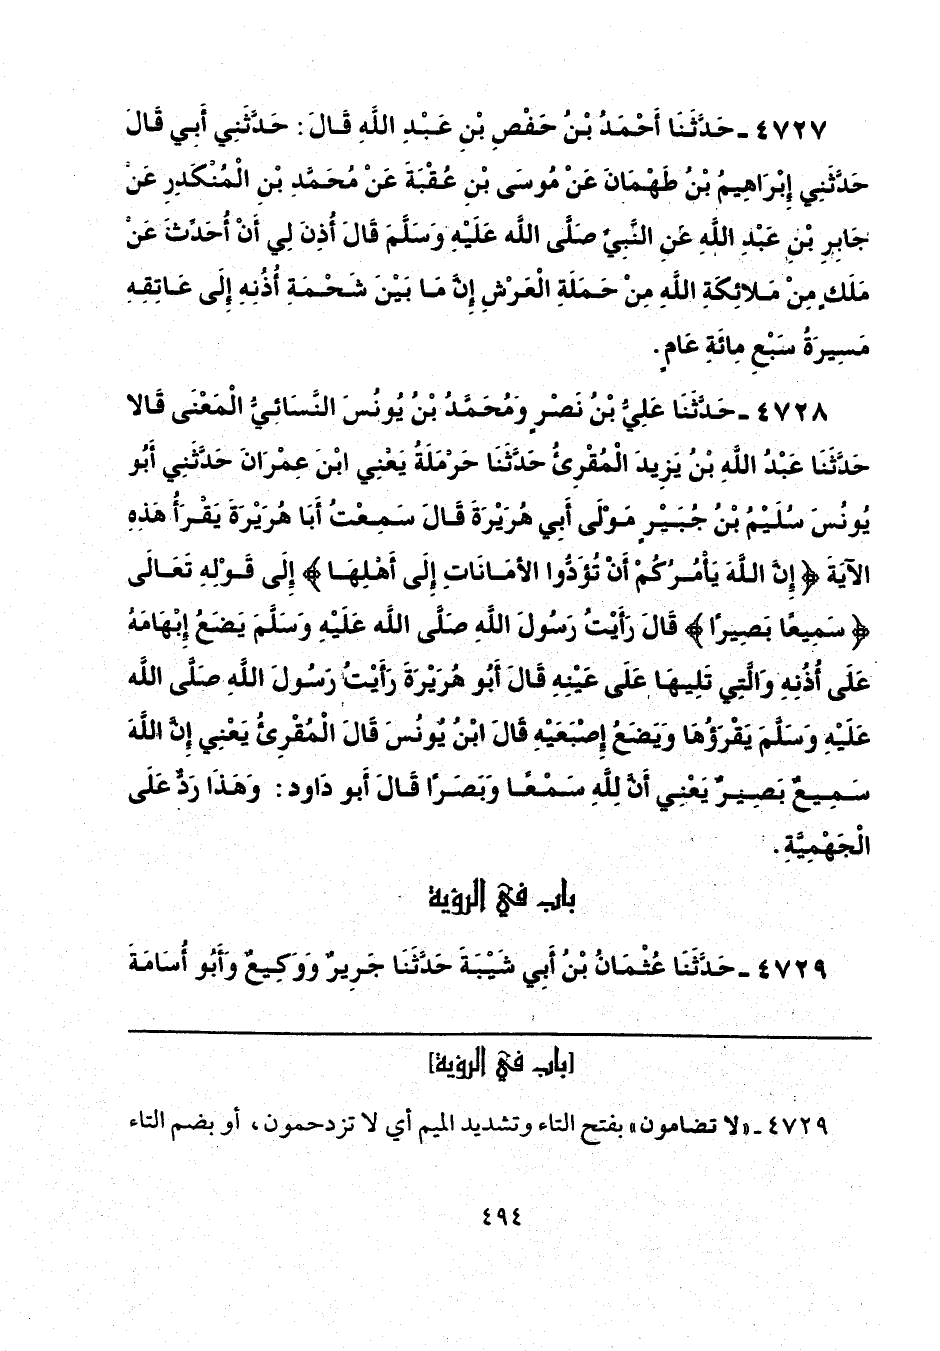 ٤٧٢٧ ـ حَدَّثَنَا أَحْمَدُ بْنُ حَفْصِ بْنِ عَبْدِ اللَّهِ قَالَ: حَدَّثَنِي أَبِي قَالَ
حَدَّثَنِي إِبْرَاهِيمُ بْنُ طَهْمَانَ عَنْ مُوسَى بْنِ عُقْبَةَ عَنْ مُحَمَّدِ بْنِ الْمُنْكَدِرِ عَنْ
جَابِرِ بْنِ عَبْدِ اللَّهِ عَنِ النَّبِيِّ صَلَّى اللَّه عَلَيْهِ وَسَلَّمَ قَالَ أُذِنَ لِي أَنْ أُحَدِّثَ عَنْ
مَلَكٍ مِنْ مَلائِكَةِ اللَّهِ مِنْ حَمَلَةِ الْعَرْشِ إِنَّ مَا بَيْنَ شَحْمَةِ أُذُنِهِ إِلَى عَاتِقِهِ
مَسِيرَةُ سَبْعِ مِائَةِ عَامٍ.
٤٧٢٨ ـ حَدَّثَنَا عَلِيُّ بْنُ نَصْرٍ وَمُحَمَّدُ بْنُ يُونُسَ النَّسَائِيُّ الْمَعْنَى قَالا
حَدَّثَنَا عَبْدُ اللَّهِ بْنُ يَزِيدَ الْمُقْرِئُ حَدَّثَنَا حَرْمَلَةُ يَعْنِي ابْنَ عِمْرَانَ حَدَّثَنِي أَبُو
يُونُسَ سُلَيْمُ بْنُ جُبَيْرٍ مَوْلَى أَبِي هُرَيْرَةَ قَالَ سَمِعْتُ أَبَا هُرَيْرَةَ يَقْرَأُ هَذِهِ
الآيَةَ ﴿إِنَّ اللَّهَ يَأْمُرُكُمْ أَنْ تُؤَدُّوا الأمَانَاتِ إِلَى أَهْلِهَا﴾ إِلَى قَوْلِهِ تَعَالَى
﴿سَمِيعًا بَصِيرًا﴾ قَالَ رَأَيْتُ رَسُولَ اللَّهِ صَلَّى اللَّه عَلَيْهِ وَسَلَّمَ يَضَعُ إِبْهَامَهُ
عَلَى أُذُنِهِ وَالَّتِي تَلِيهَا عَلَى عَيْنِهِ قَالَ أَبُو هُرَيْرَةَ رَأَيْتُ رَسُولَ اللَّهِ صَلَّى اللَّه
عَلَيْهِ وَسَلَّمَ يَقْرَؤُهَا وَيَضَعُ إِصْبَعَيْهِ قَالَ ابْنُ يُونُسَ قَالَ الْمُقْرِئُ يَعْنِي إِنَّ اللَّهَ
سَمِيعٌ بَصِيرٌ يَعْنِي أَنَّ لِلَّهِ سَمْعًا وَبَصَرًا قَالَ أبو دَاود: وَهَذَا رَدٌّ عَلَى
الْجَهْمِيَّةِ.
باب في الرؤية
٤٧٢٩ ـ حَدَّثَنَا عُثْمَانُ بْنُ أَبِي شَيْبَةَ حَدَّثَنَا جَرِيرٌ وَوَكِيعٌ وَأَبُو أُسَامَةَ
[باب في الرؤية]
٤٧٢٩ ـ «لا تضامون» بفتح التاء وتشديد الميم أي لا تزدحمون، أو بضم التاء
٤٩٤